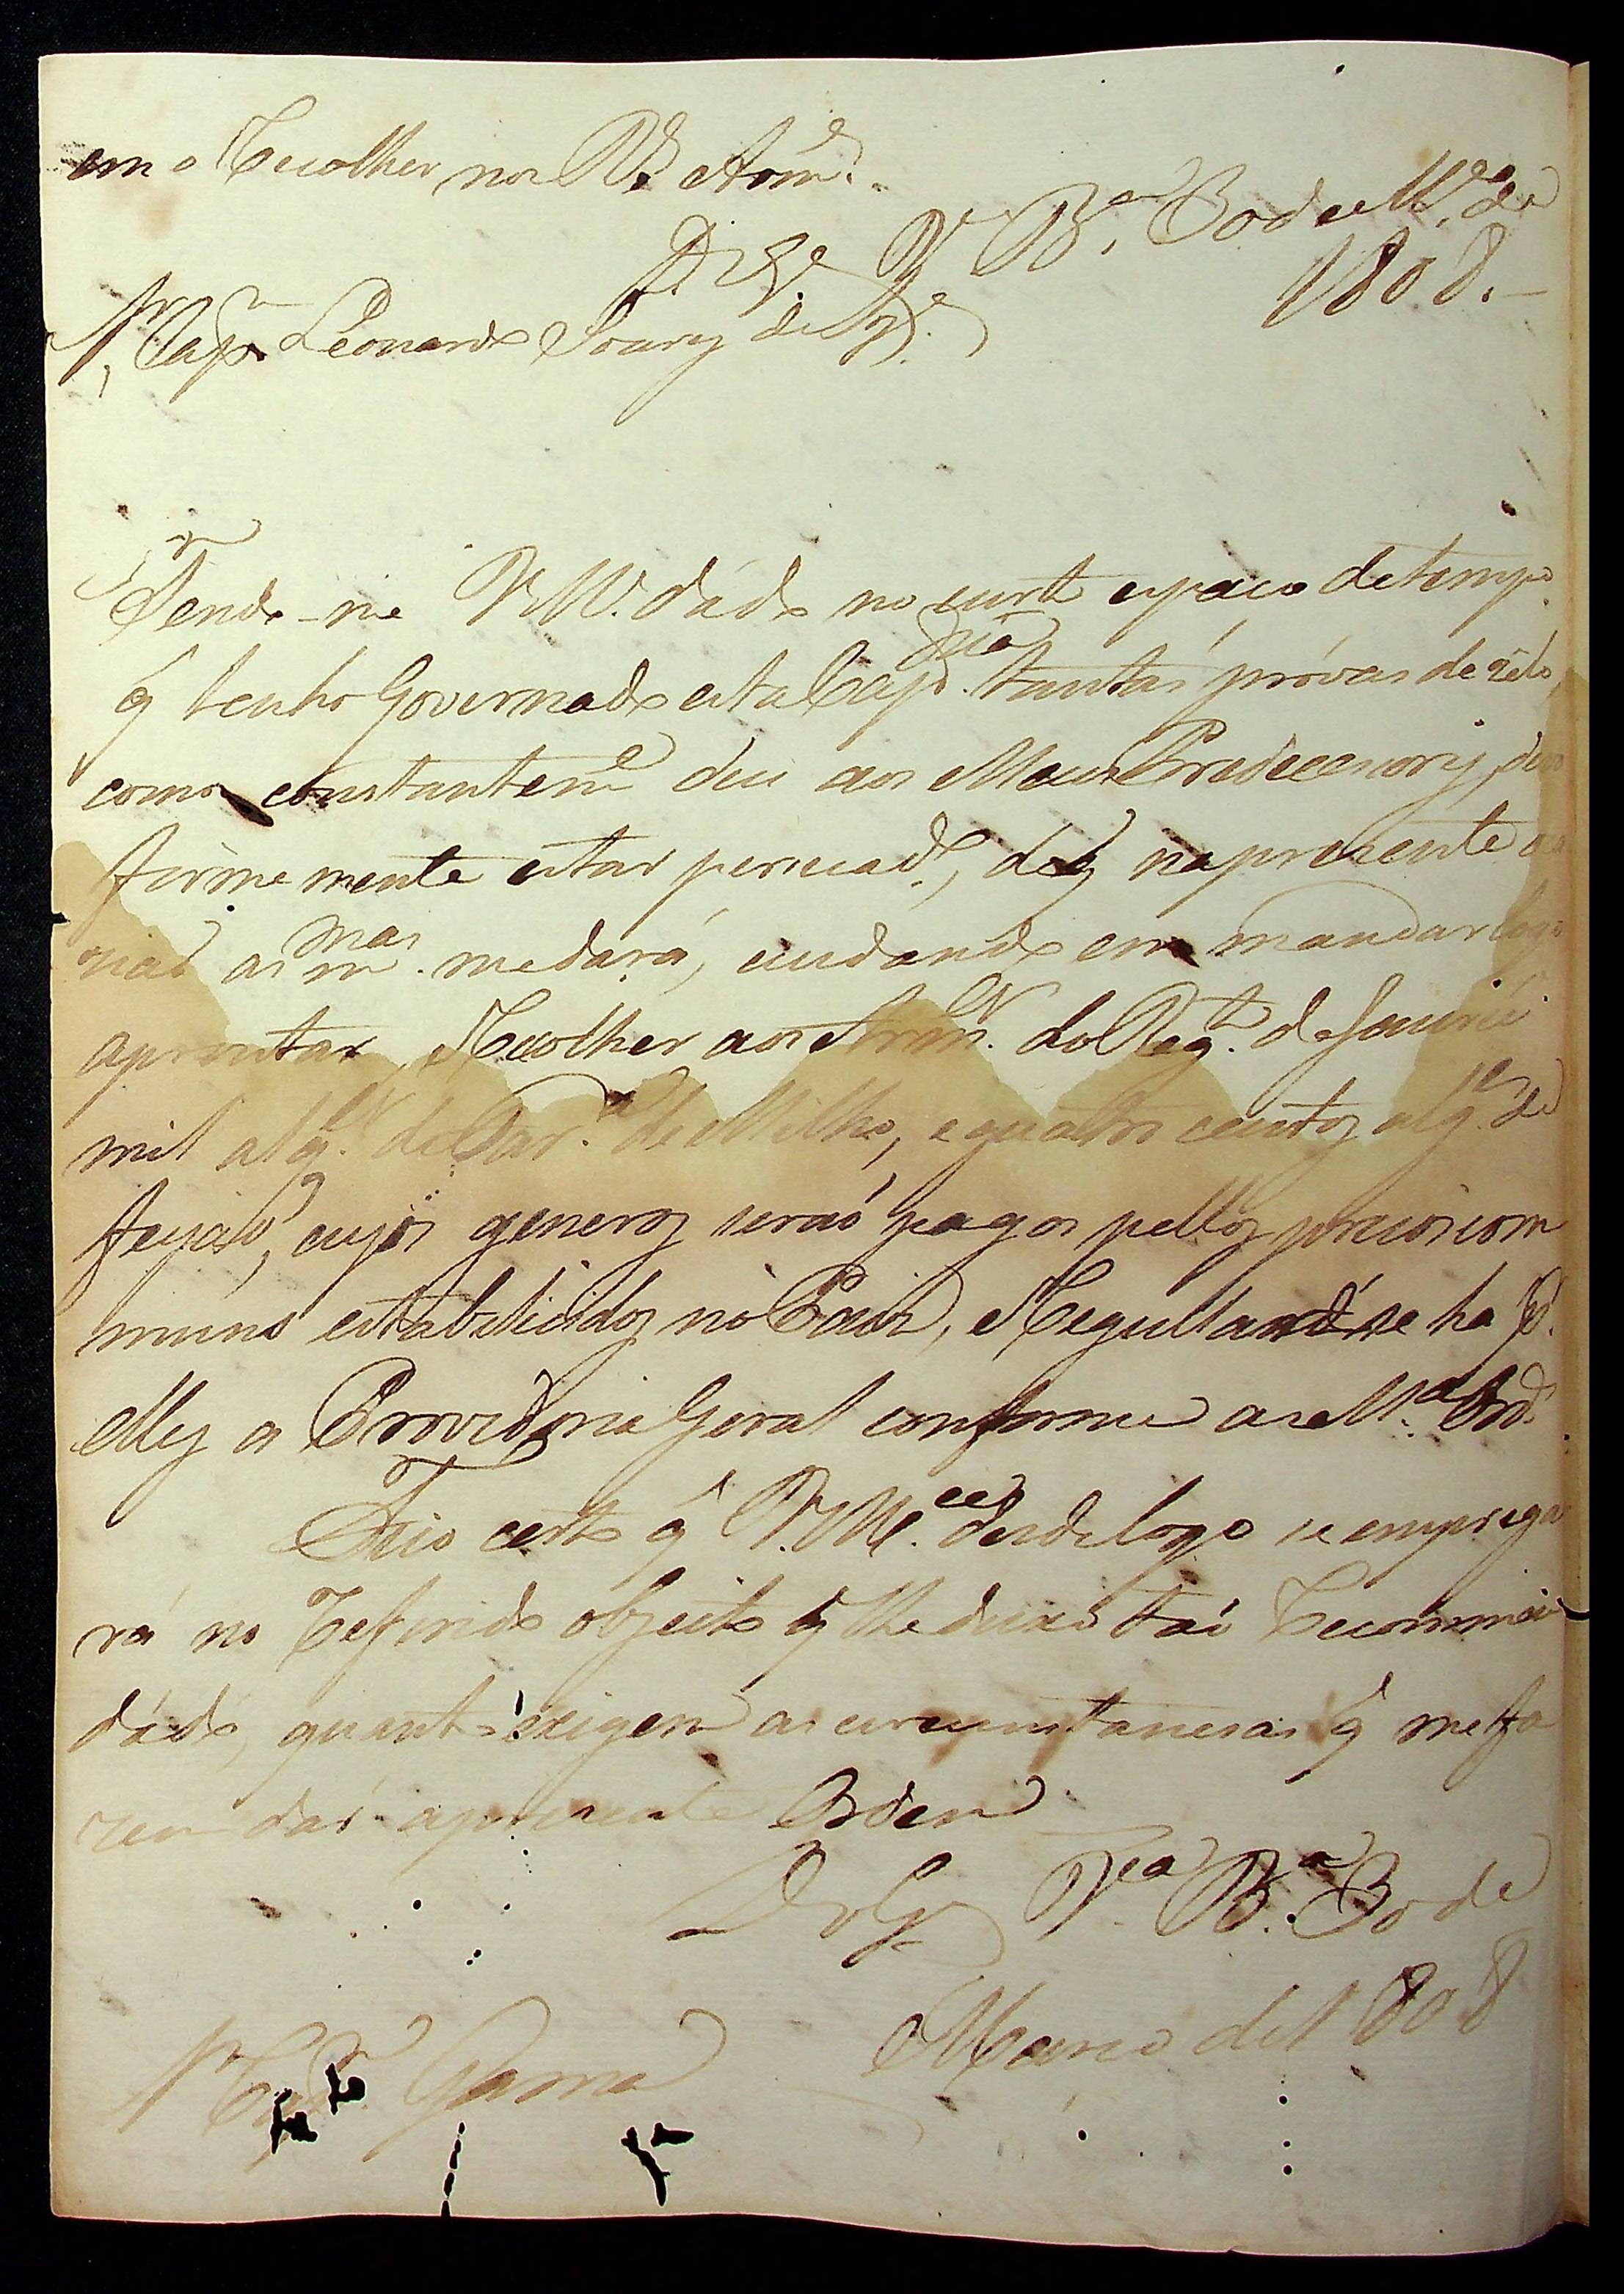 em o Recolher nos R.s Arm.s
D.s g.e V.a B.a 30 de M.ço de
1808.
S.r Cap.m Leonardo Soares de
S.r
Tendo-me V.M. dádo no curto espaço de tempo
q̃ tenho Governado esta Cap.nia tantas próvas de zélo,
como constantem.e deu aos Meus Predecessores, devo
firmemente estar persuad.o, de q̃ na presente
naõ as m.mas me dará, cuidando em mandar logo
apromtar, e Recolher aos Arm.s do Reg.to
mil alq.s de Far.a de Milho, e quatro centos alq.s de
feijaõ, cujos generos seraõ pagos pellos preços com
muns establicidos no Paiz, e Regullando-se ha p.r
elles a Provedoria Geral conforme as M.as Ord.s
Fico certo q̃ V.M.ce desde logo se emprega
rá no Referido objecto q̃ lhe deixo taõ Recommen
dádo, quanto exigem as circunstancias q̃ me fa
zem dar a presente Ordem
D.s g.e V.a B.a 30 de
Março de 1808
S.r Cap.m Gama